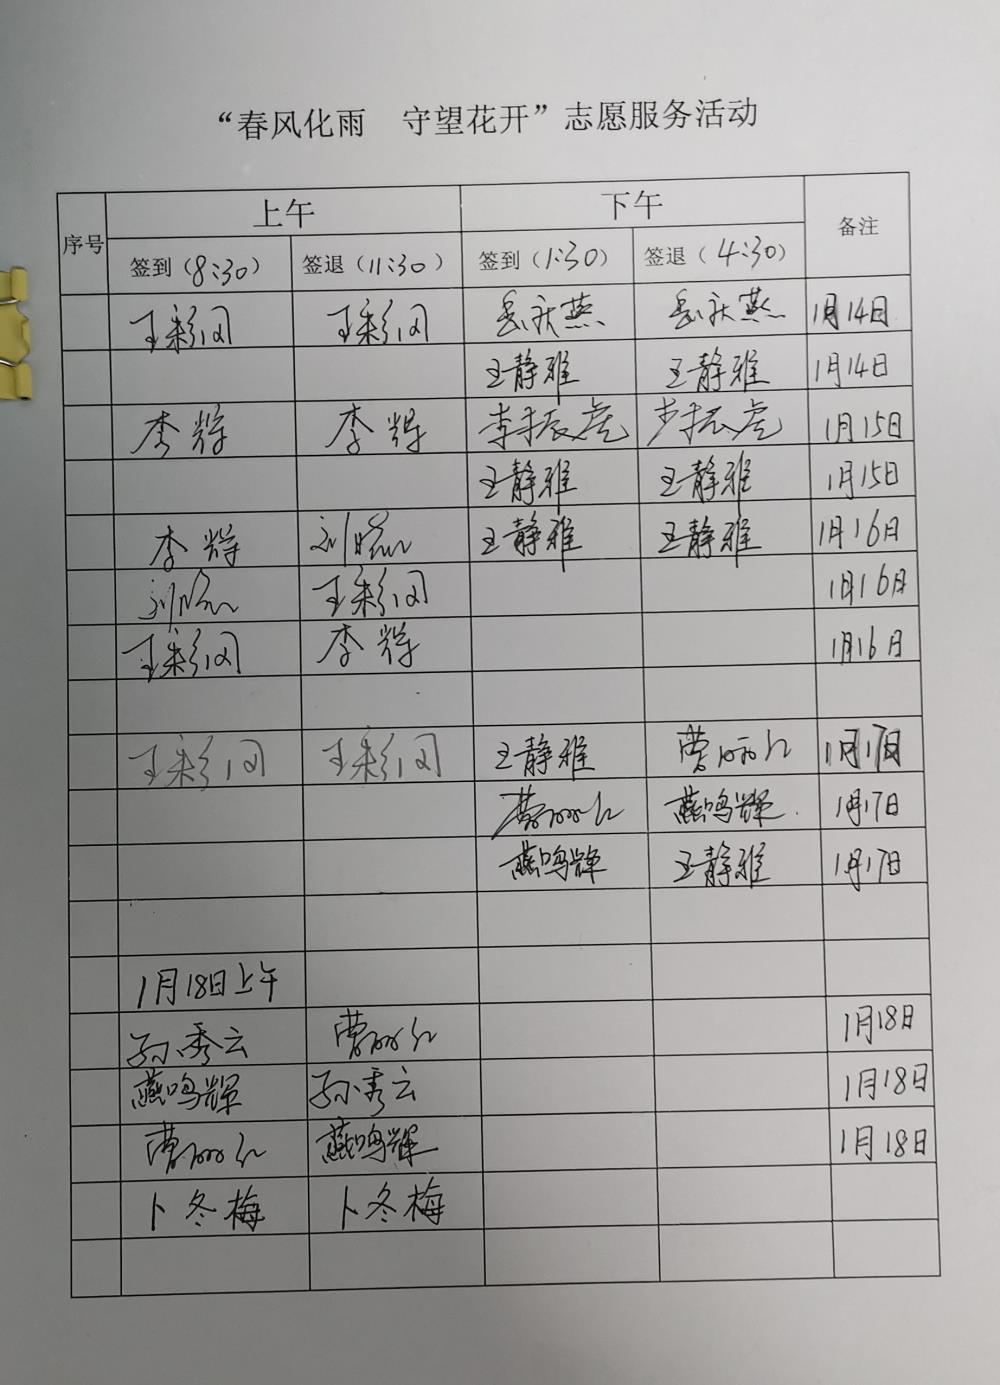 “春风化雨 守望花开”志愿服务活动
序号 上午 下午 备注
签到（8:30） 签退（11:30） 签到（1:30） 签退（4:30）
王彩闪 王彩闪 1月14日
王静雅 王静雅 1月14日
李辉 李辉 李振虎 李振虎 1月15日
王静雅 王静雅 1月15日
李辉 刘晓 王静雅 王静雅 1月16日
刘晓 王彩闪 1月16日
王彩闪 李辉 1月16日
王彩闪 王彩闪 王静雅 曹丽红 1月17日
曹丽红 燕鸣辉 1月17日
燕鸣辉 王静雅 1月17日
1月18日上午
孙秀云 曹丽红 1月18日
燕鸣辉 孙秀云 1月18日
曹丽红 燕鸣辉 1月18日
卜冬梅 卜冬梅